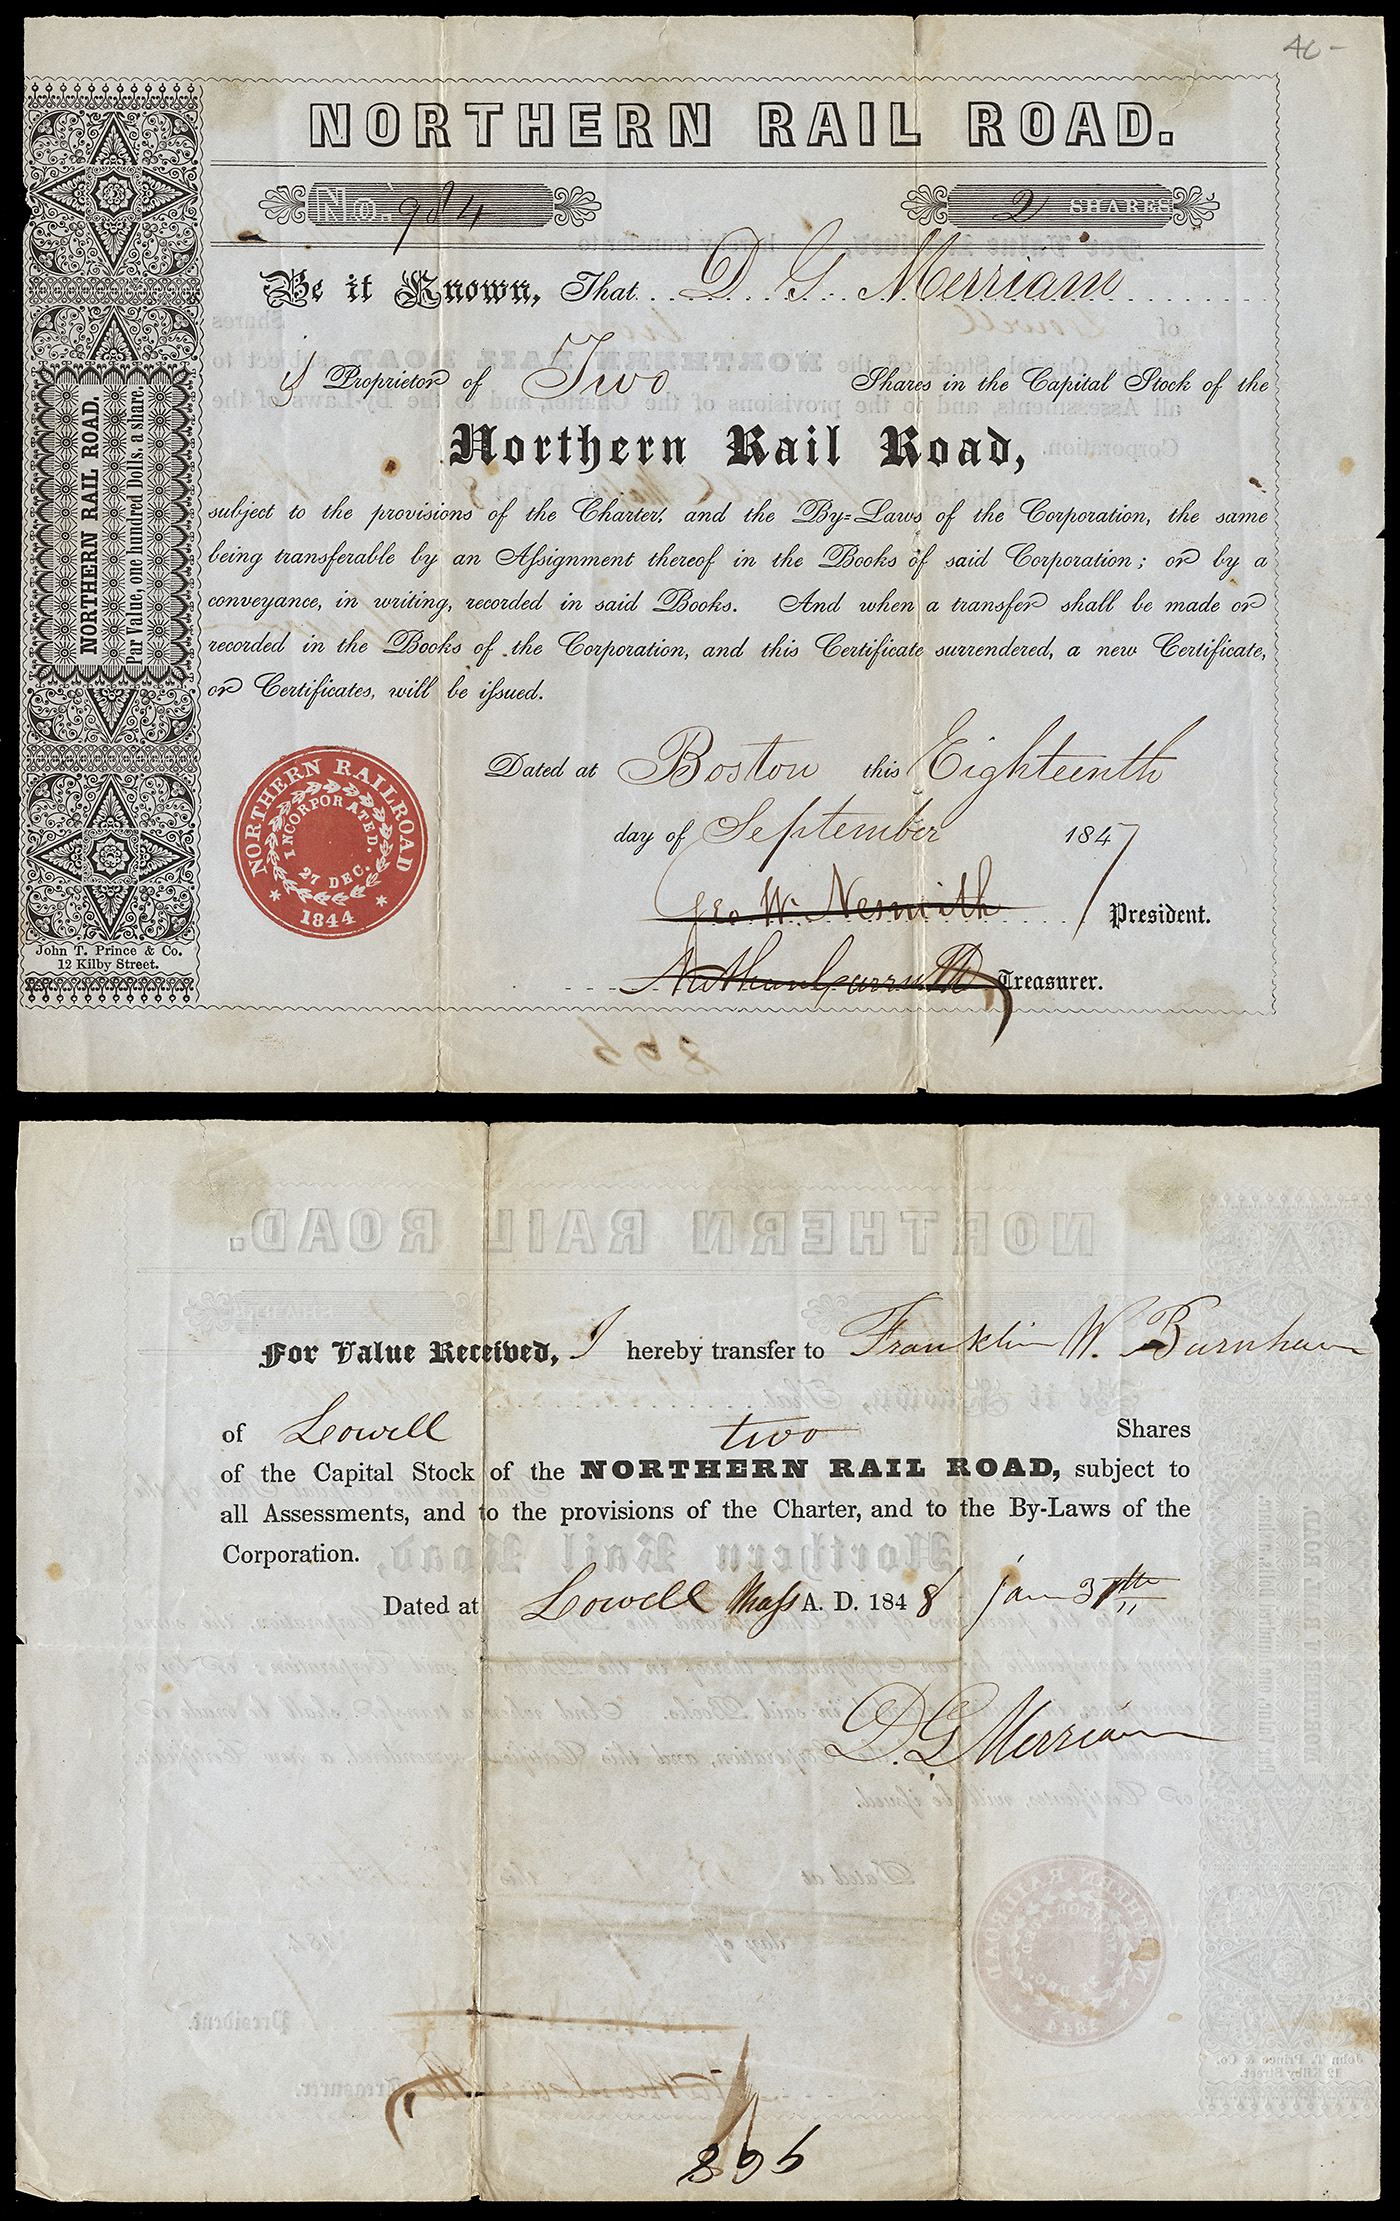 40-
NORTHERN RAIL ROAD.
No. 984
2 SHARES
Be it Known, That D G Merriam
is Proprietor of Two Shares in the Capital Stock of the
Northern Rail Road,
subject to the provisions of the Charter, and the By-Laws of the Corporation, the same
being transferable by an Assignment thereof in the Books of said Corporation; or by a
conveyance, in writing, recorded in said Books. And when a transfer shall be made or
recorded in the Books of the Corporation, and this Certificate surrendered, a new Certificate,
or Certificates, will be issued.
Dated at Boston this Eighteenth
day of September 1847
Geo W. Nesmith President.
Nathan Carruth Treasurer.
NORTHERN RAIL ROAD.
Par Value, one hundred Dolls. a share.
John T. Prince & Co.
12 Kilby Street.
NORTHERN RAILROAD
INCORPORATED.
27 DEC.
* 1844 *
For Value Received, I hereby transfer to Franklin W. Burnham
of Lowell two Shares
of the Capital Stock of the NORTHERN RAIL ROAD, subject to
all Assessments, and to the provisions of the Charter, and to the By-Laws of the
Corporation.
Dated at Lowell Mass A. D. 1848 Jan 31th
D. G Merriam